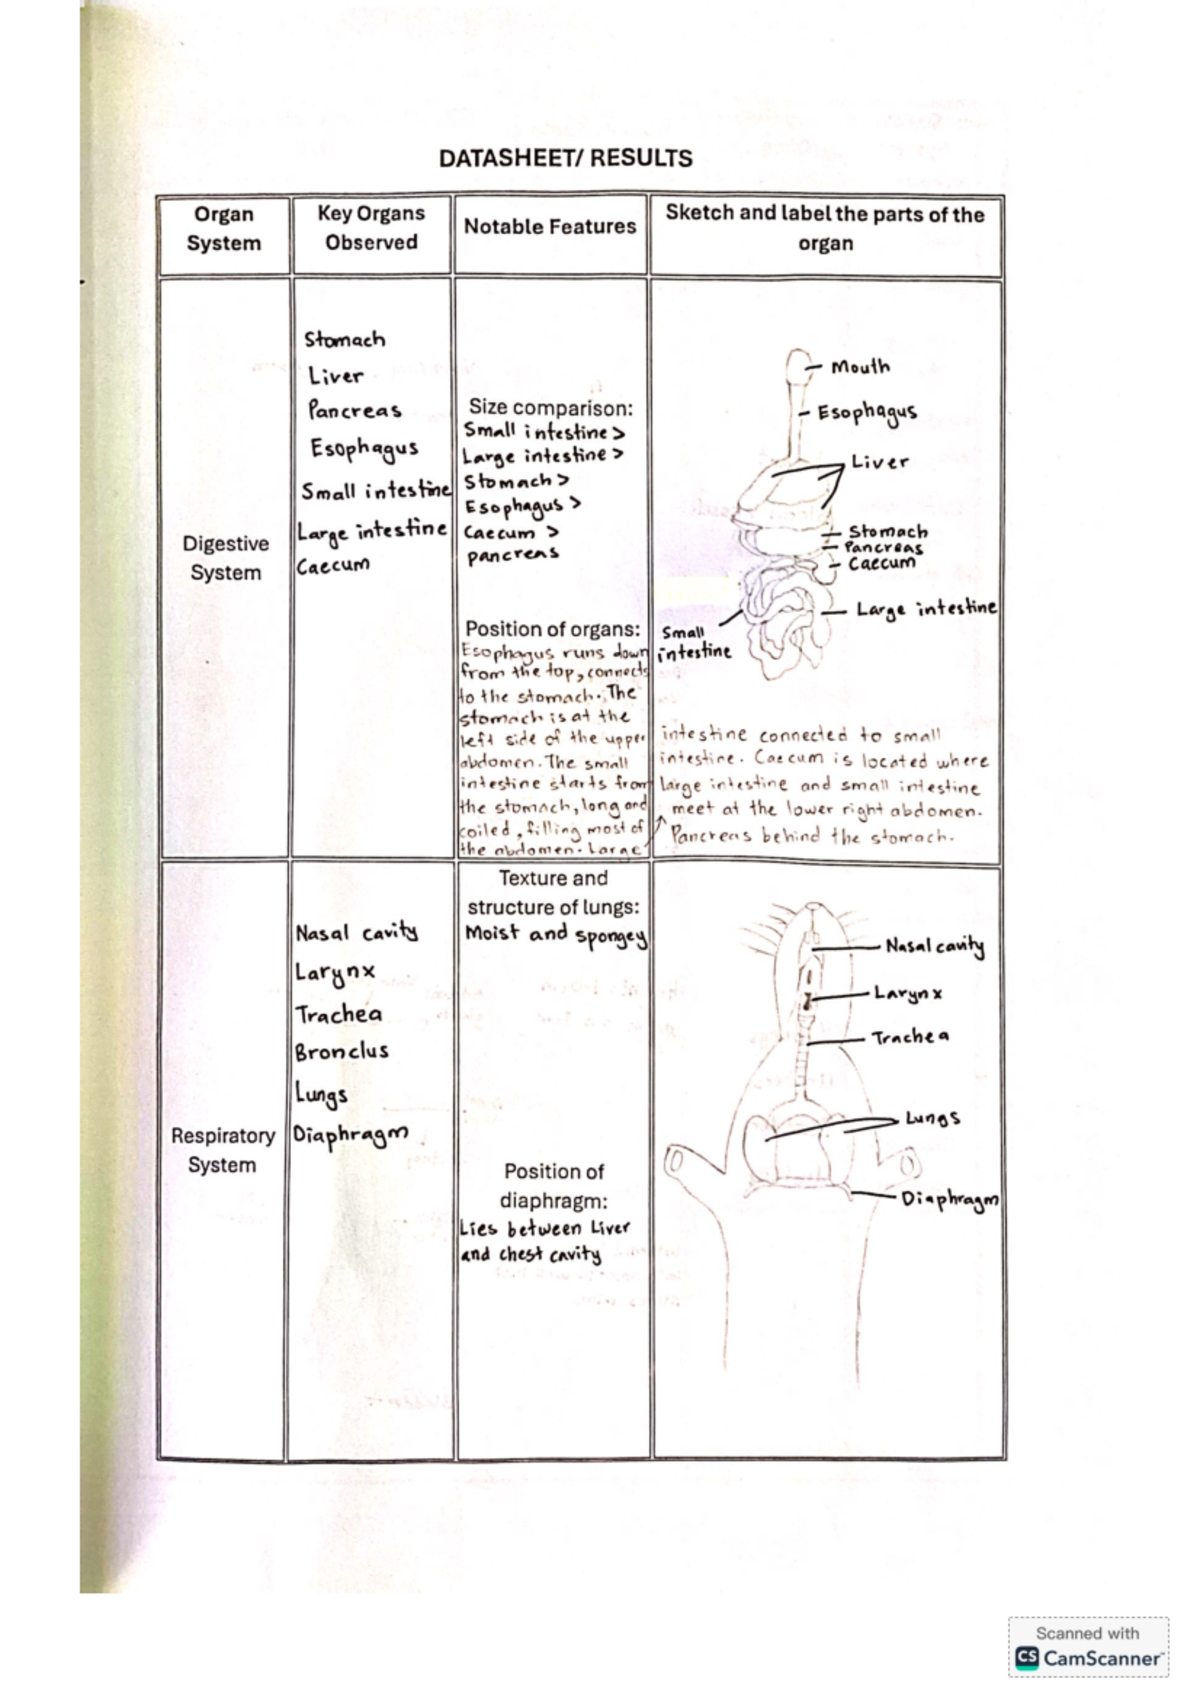 DATASHEET/ RESULTS
Organ
System
Key Organs
Observed
Notable Features
Sketch and label the parts of the
organ
Digestive
System
Stomach
Liver
Pancreas
Esophagus
Small intestine
Large intestine
Caecum
Size comparison:
Small intestine >
Large intestine >
Stomach >
Esophagus >
Caecum >
pancreas
Position of organs:
Esophagus runs down
from the top, connects
to the stomach. The
stomach is at the
left side of the upper
abdomen. The small
intestine starts from
the stomach, long and
coiled, filling most of
the abdomen. Large
Mouth
Esophagus
Liver
Stomach
Pancreas
Caecum
Large intestine
Small
intestine
intestine connected to small
intestine. Caecum is located where
large intestine and small intestine
meet at the lower right abdomen.
Pancreas behind the stomach.
Respiratory
System
Nasal cavity
Larynx
Trachea
Bronclus
Lungs
Diaphragm
Texture and
structure of lungs:
Moist and spongey
Position of
diaphragm:
Lies between Liver
and chest cavity
Nasal cavity
Larynx
Trachea
Lungs
Diaphragm
Scanned with
CS CamScanner